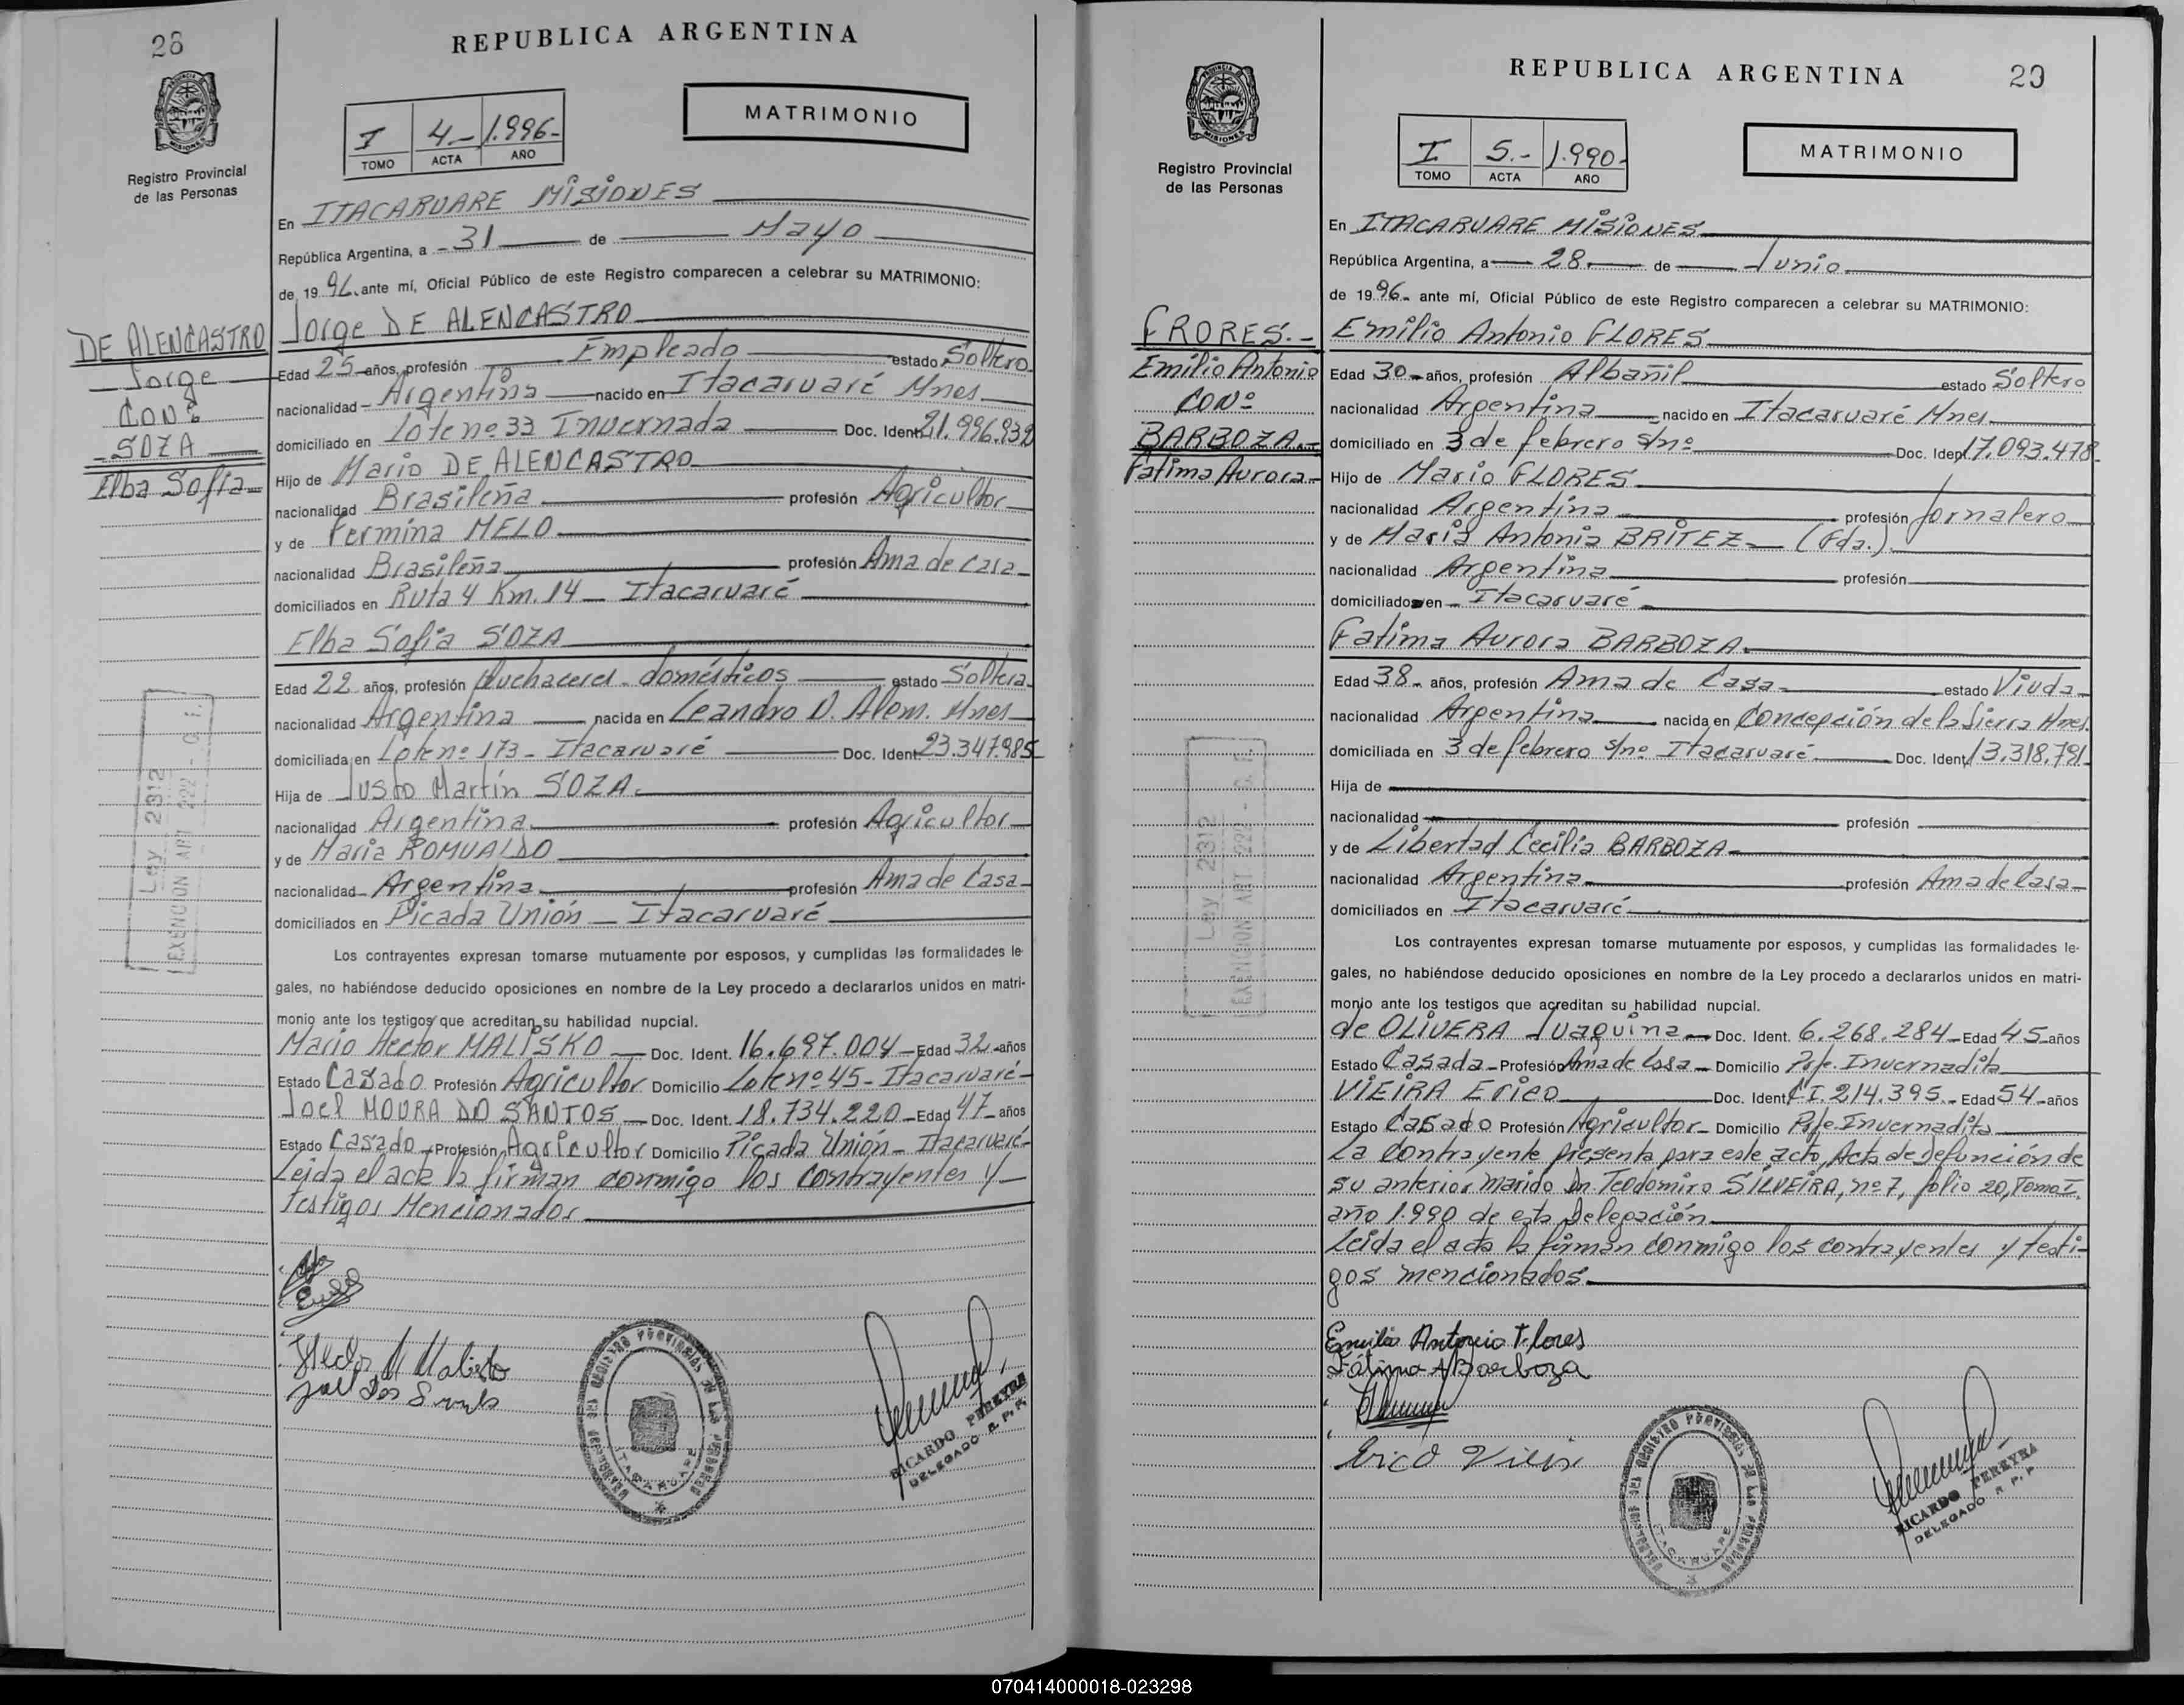 28
REPUBLICA ARGENTINA
MATRIMONIO
I 4- 1.996-
TOMO ACTA AÑO
Registro Provincial
de las Personas
En ITACARUARE MISIONES
República Argentina, a - 31 de Mayo
de 19 96. ante mí, Oficial Público de este Registro comparecen a celebrar su MATRIMONIO:
DE ALENCASTRO
Jorge
CON:
SOZA
Elba Sofía
Jorge DE ALENCASTRO
Edad 25 años, profesión Empleado estado Soltero
nacionalidad Argentina nacido en Itacaruaré Mnes.
domiciliado en Lote nº 33 Invernada Doc. Ident. 21.996.932
Hijo de Mario DE ALENCASTRO
nacionalidad Brasileña profesión Agricultor
y de Fermina MELO
nacionalidad Brasileña profesión Ama de Casa
domiciliados en Ruta 4 Km. 14 - Itacaruaré
Elba Sofía SOZA
Edad 22 años, profesión Quehaceres domésticos estado Soltera
nacionalidad Argentina nacida en Leandro N. Alem. Mnes
domiciliada en Lote nº 173 - Itacaruaré Doc. Ident. 23.347.985
Hija de Justo Martín SOZA.
nacionalidad Argentina profesión Agricultor
y de María ROMUALDO
nacionalidad Argentina profesión Ama de Casa
domiciliados en Picada Unión - Itacaruaré
Ley 2312
EXENCION ART 222 - C. F.
Los contrayentes expresan tomarse mutuamente por esposos, y cumplidas las formalidades le-
gales, no habiéndose deducido oposiciones en nombre de la Ley procedo a declararlos unidos en matri-
monio ante los testigos que acreditan su habilidad nupcial.
Mario Hector MALISKO Doc. Ident. 16.697.004 - Edad 32 años
Estado Casado Profesión Agricultor Domicilio Lote nº 45 - Itacaruaré
Joel MOURA DO SANTOS Doc. Ident. 18.734.220 - Edad 47 años
Estado Casado Profesión Agricultor Domicilio Picada Unión - Itacaruaré
Leida el acta la firman conmigo los contrayentes y
testigos Mencionados
RICARDO PEREYRA
DELEGADO R. P. P.
29
REPUBLICA ARGENTINA
MATRIMONIO
I 5.- 1.990-
TOMO ACTA AÑO
Registro Provincial
de las Personas
En ITACARUARE MISIONES
República Argentina, a 28 de Junio
de 19 96- ante mí, Oficial Público de este Registro comparecen a celebrar su MATRIMONIO:
FRORES.-
Emilio Antonio
CONº
BARBOZA.-
Fatima Aurora-
Emilio Antonio FLORES
Edad 30 años, profesión Albañil estado Soltero
nacionalidad Argentina nacido en Itacaruaré Mnes.
domiciliado en 3 de febrero s/nº Doc. Iden. 17.093.478.
Hijo de Mario FLORES
nacionalidad Argentina profesión Jornalero
y de María Antonia BRITEZ (Fda.)
nacionalidad Argentina profesión
domiciliados en Itacaruaré
Fatima Aurora BARBOZA.
Edad 38 años, profesión Ama de Casa estado Viuda
nacionalidad Argentina nacida en Concepción de la Sierra Mnes.
domiciliada en 3 de febrero s/nº Itacaruaré Doc. Ident. 13.318.791
Hija de
nacionalidad profesión
y de Libertad Cecilia BARBOZA
nacionalidad Argentina profesión Ama de Casa
domiciliados en Itacaruaré
Ley 2312
EXENCION ART 222 - C. F.
Los contrayentes expresan tomarse mutuamente por esposos, y cumplidas las formalidades le-
gales, no habiéndose deducido oposiciones en nombre de la Ley procedo a declararlos unidos en matri-
monio ante los testigos que acreditan su habilidad nupcial.
de OLIVERA Juaquina Doc. Ident. 6.268.284 - Edad 45 años
Estado Casada - Profesión Ama de Casa - Domicilio Pje. Invernadita
VIEIRA Erico Doc. Ident. CI. 214.395.- Edad 54 años
Estado Casado Profesión Agricultor - Domicilio Pje. Invernadita
La contrayente presenta para este acto, Acta de Defunción de
su anterior marido Dn. Teodomiro SILVEIRA, nº 7, folio 20, Tomo I.
año 1.990 de esta Delegación
Leida el acta la firman conmigo los contrayentes y testi-
gos mencionados.
Emilio Antonio Flores
Fátima A Barboza
Erico Vieir
RICARDO PEREYRA
DELEGADO R. P. P
070414000018-023298